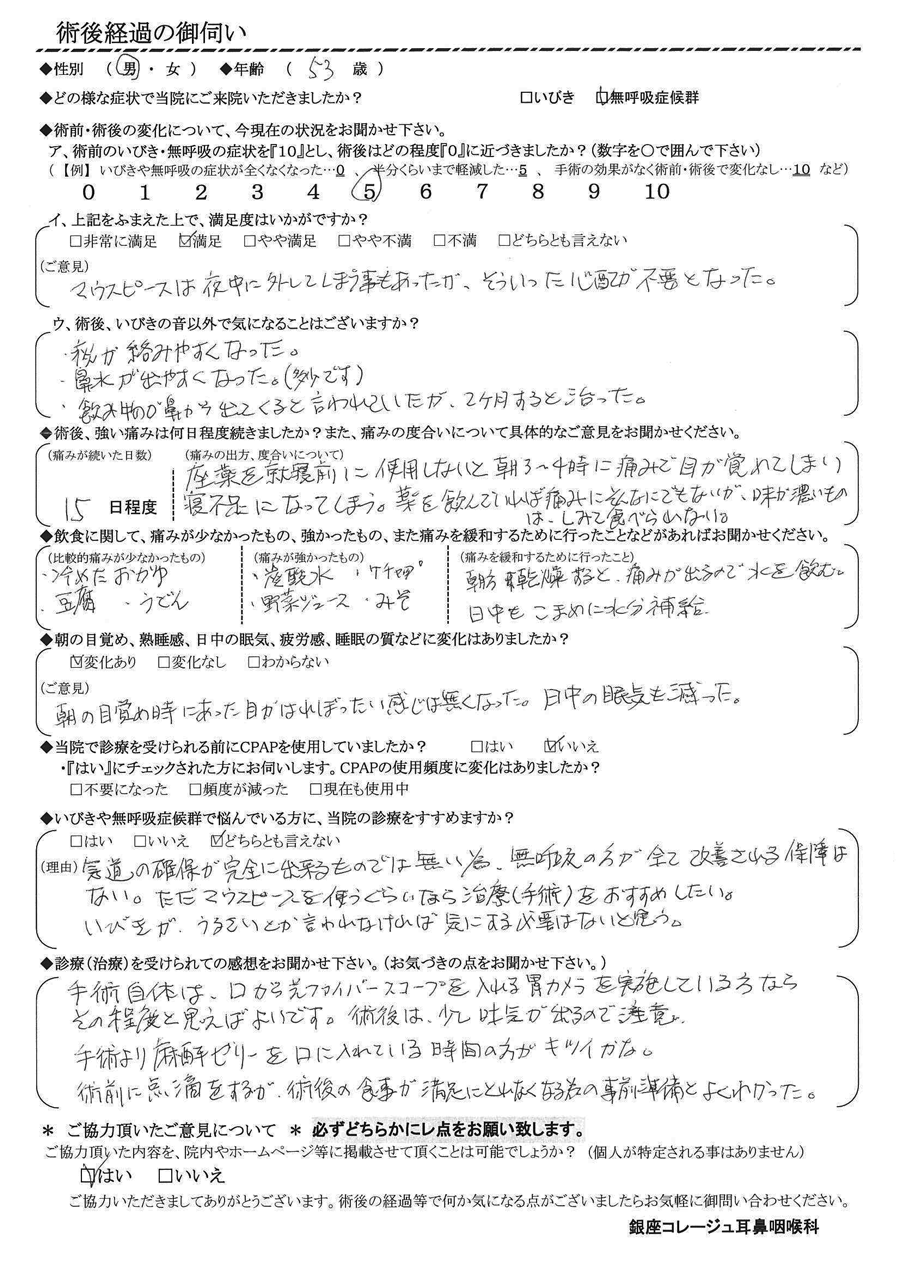 術後経過の御伺い
◆性別 （ 男 ・ 女 ） ◆年齢 （ 53 歳 ）
◆どの様な症状で当院にご来院いただきましたか？ □いびき ☑無呼吸症候群
◆術前・術後の変化について、今現在の状況をお聞かせ下さい。
ア、術前のいびき・無呼吸の症状を『10』とし、術後はどの程度『0』に近づきましたか？（数字を〇で囲んで下さい）
（【例】 いびきや無呼吸の症状が全くなくなった…0 、 半分くらいまで軽減した…5 、 手術の効果がなく術前・術後で変化なし…10 など）
0 1 2 3 4 5 6 7 8 9 10
イ、上記をふまえた上で、満足度はいかがですか？
□非常に満足 ☑満足 □やや満足 □やや不満 □不満 □どちらとも言えない
（ご意見）
マウスピースは夜中に外してしまう事もあったが、そういった心配が不要となった。
ウ、術後、いびきの音以外で気になることはございますか？
・痰が絡みやすくなった。
・鼻水が出やすくなった。（多少です）
・飲み物が鼻から出てくると言われていたが、2ヶ月すると治った。
◆術後、強い痛みは何日程度続きましたか？また、痛みの度合いについて具体的なご意見をお聞かせください。
（痛みが続いた日数） （痛みの出方、度合いについて）
座薬を就寝前に使用しないと朝3〜4時に痛みで目が覚れてしまい
15 日程度 寝不足になってしまう。薬を飲んでいれば痛みにそんなにでもないが、味が濃いもの
は、しみて食べられない。
◆飲食に関して、痛みが少なかったもの、強かったもの、また痛みを緩和するために行ったことなどがあればお聞かせください。
（比較的痛みが少なかったもの） （痛みが強かったもの） （痛みを緩和するために行ったこと）
・冷めたおかゆ ・炭酸水 ・ケチャップ 朝方乾燥すると、痛みが出るので水を飲む。
・豆腐 ・うどん ・野菜ジュース ・みそ 日中もこまめに水分補給
◆朝の目覚め、熟睡感、日中の眠気、疲労感、睡眠の質などに変化はありましたか？
☑変化あり □変化なし □わからない
（ご意見）
朝の目覚め時にあった目がはれぼったい感じは無くなった。日中の眠気も減った。
◆当院で診療を受けられる前にCPAPを使用していましたか？ □はい ☑いいえ
・『はい』にチェックされた方にお伺いします。CPAPの使用頻度に変化はありましたか？
□不要になった □頻度が減った □現在も使用中
◆いびきや無呼吸症候群で悩んでいる方に、当院の診療をすすめますか？
□はい □いいえ ☑どちらとも言えない
（理由） 気道の確保が完全に出来るものでは無い為、無呼吸の方が全て改善される保障は
ない。ただマウスピースを使うぐらいなら治療（手術）をおすすめしたい。
いびきが、うるさいとか言われなければ気にする必要はないと思う。
◆診療（治療）を受けられての感想をお聞かせ下さい。（お気づきの点をお聞かせ下さい。）
手術自体は、口から光ファイバースコープを入れる胃カメラを実施している方なら
その程度と思えばよいです。術後は、少し吐気が出るので注意。
手術より麻酔ゼリーを口に入れている時間の方がキツイかな。
術前に点滴をするが、術後の食事が満足にとれなくなる為の事前準備とよくわかった。
＊ ご協力頂いたご意見について ＊ 必ずどちらかにレ点をお願い致します。
ご協力頂いた内容を、院内やホームページ等に掲載させて頂くことは可能でしょうか？ （個人が特定される事はありません）
☑はい □いいえ
ご協力いただきましてありがとうございます。術後の経過等で何か気になる点がございましたらお気軽に御問い合わせください。
銀座コレージュ耳鼻咽喉科